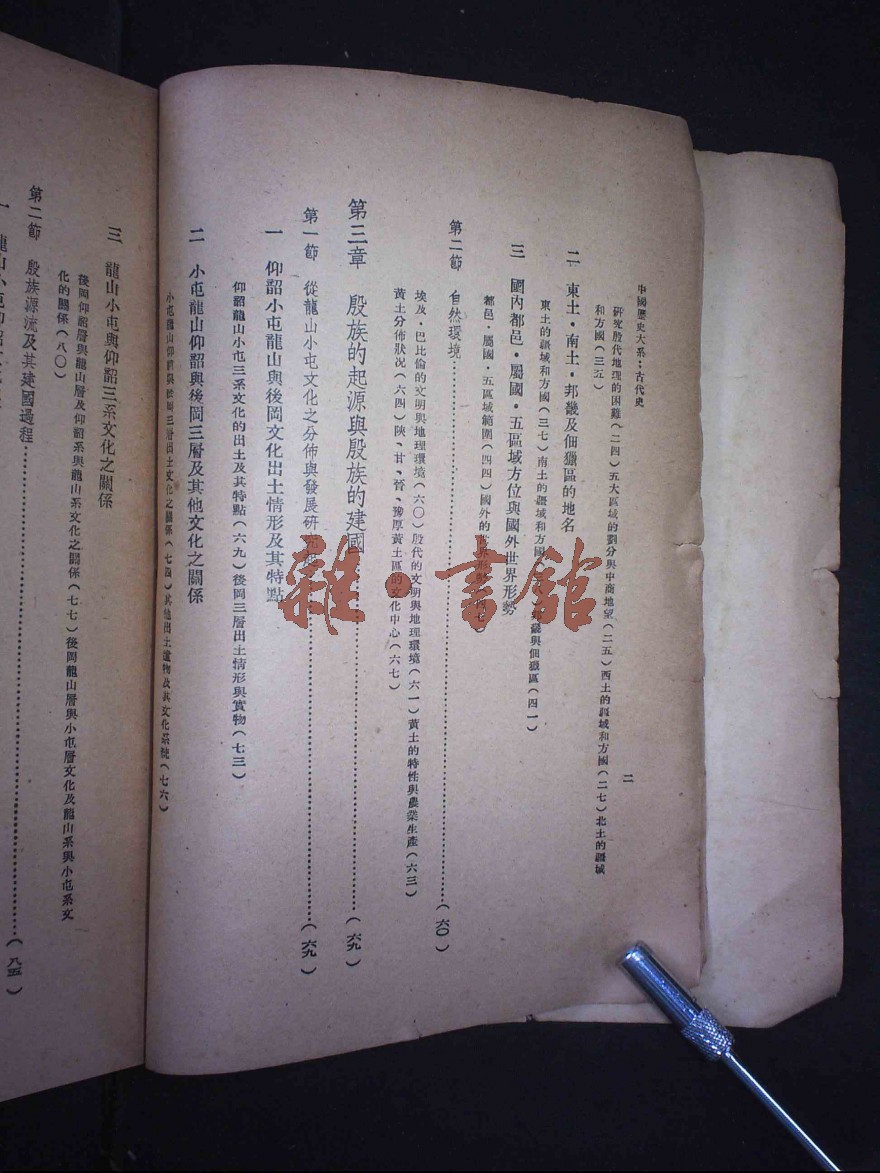 中國歷史大系：古代史
二
研究殷代地理的困難（二四）五大區域的劃分與中商地望（二五）西土的疆域和方國（二七）北土的疆域
和方國（三五）
二 東土・南土・邦畿及佃獵區的地名
東土的疆域和方國（三七）南土的疆域和方國（三八）邦畿與佃獵區（四一）
三 國內都邑・屬國・五區域方位與國外世界形勢
都邑・屬國・五區域範圍（四四）國外的世界形勢（四七）
第二節 自然環境（六〇）
埃及・巴比倫的文明與地理環境（六〇）殷代的文明與地理環境（六一）黃土的特性與農業生產（六三）
黃土分佈狀況（六四）陝、甘、晉、豫厚黃土區的文化中心（六七）
第三章 殷族的起源與殷族的建國（六九）
第一節 從龍山小屯文化之分佈與發展研究起（六九）
一 仰韶小屯龍山與後岡文化出土情形及其特點
仰韶龍山小屯三系文化的出土及其特點（六九）後岡三層出土情形與實物（七三）
二 小屯龍山仰韶與後岡三層及其他文化之關係
小屯龍山仰韶與後岡三層出土文化之關係（七四）其他出土遺物及其文化系統（七六）
三 龍山小屯與仰韶三系文化之關係
後岡仰韶層與龍山層及仰韶系與龍山系文化之關係（七七）後岡龍山層與小屯層文化及龍山系與小屯系文
化的關係（八〇）
第二節 殷族源流及其建國過程（八五）
雜・書館